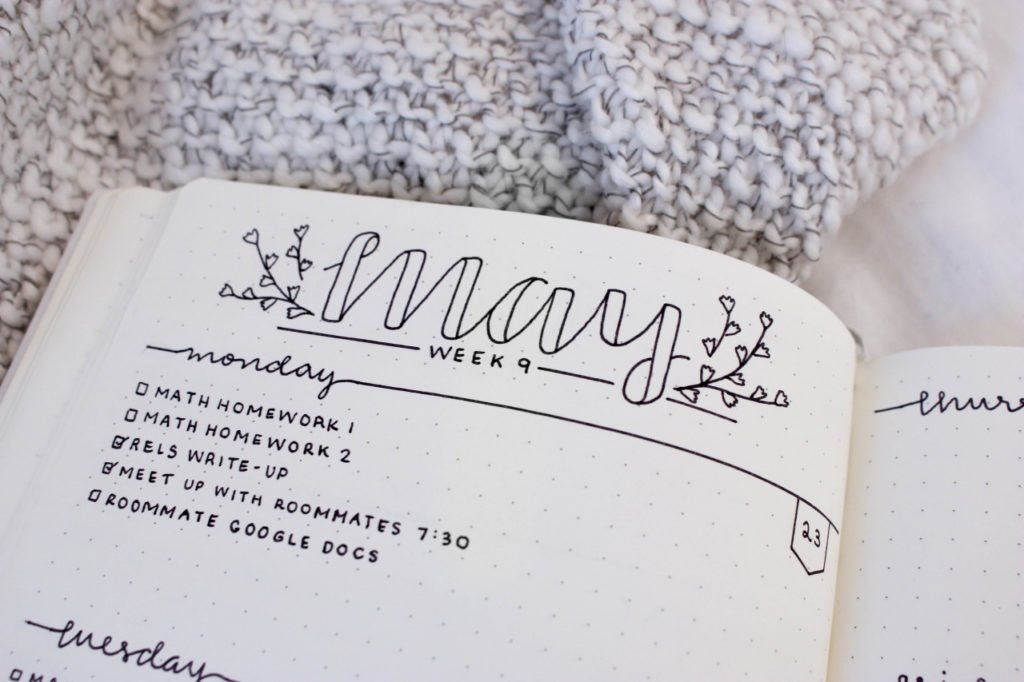 may
WEEK 9
monday
MATH HOMEWORK 1
MATH HOMEWORK 2
RELS WRITE-UP
MEET UP WITH ROOMMATES 7:30
ROOMMATE GOOGLE DOCS
23
tuesday